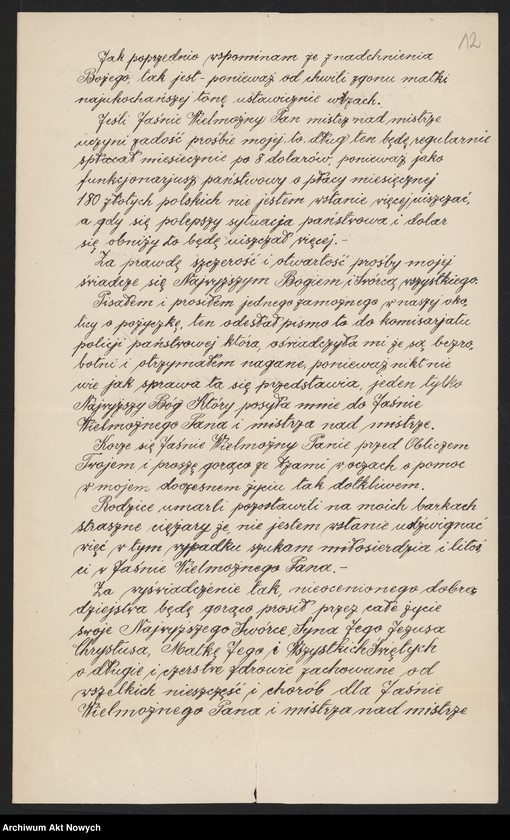 12
Jak poprzednio wspominam że z nadchnienia
Bożego, tak jest - ponieważ od chwili zgonu matki
najukochańszej tonę ustawicznie w łzach.
Jeśli Jaśnie Wielmożny Pan mistrz nad mistrze
uczyni zadość prośbie mojej, to dług ten będę regularnie
spłacał miesięcznie po 8 dolarów, ponieważ jako
funkcjonarjusz państwowy o płacy miesięcznej
180 złotych polskich nie jestem wstanie więcej uiszczać,
a gdy się polepszy sytuacja państwowa i dolar
się obniży to będę uiszczał więcej. -
Za prawdę szczerość i otwartość prośby mojej
świadczę się Najwyższym Bogiem i Twórcą wszystkiego.
Pisałem i prosiłem jednego zamożnego w naszy oko,
licy o pożyczkę, ten odesłał pismo to do komisarjatu
policji państwowej która, oświadczyła mi że są bezro,
botni i otrzymałem naganę, ponieważ nikt nie
wie jak sprawa ta się przedstawia, jeden tylko
Najwyższy Bóg Który posyła mnie do Jaśnie
Wielmożnego Pana i mistrza nad mistrze.
Korze się Jaśnie Wielmożny Panie przed Obliczem
Twojem i proszę gorąco ze łzami w oczach o pomoc
w mojem doczesnem życiu tak dotkliwem.
Rodzice umarli pozostawili na moich barkach
straszne ciężary że nie jestem wstanie udźwignąć
więc w tym wypadku szukam miłosierdzia i litoś,
ci w Jaśnie Wielmożnego Pana. -
Za wyświadczenie tak, nieocenionego dobro,
dziejstwa będę gorąco prosił przez całe życie
swoje Najwyższego Twórcę, Syna Jego Jezusa
Chrystusa, Matkę Jego i Wszystkich Świętych
o długie i czerstwe zdrowie zachowane od
wszelkich nieszczęść i chorób dla Jaśnie
Wielmożnego Pana i mistrza nad mistrze
Archiwum Akt Nowych